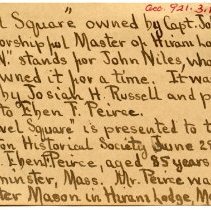 Acc. 921.3.1
l Square" owned by Capt. Jo
orshipful Master of Hiram Lo
N" stands for John Niles, who
owned it for a time. It wa
by Josiah H. Russell and p
to Eben F. Peirce.
vel Square" is presented to t
on Historical Society June 29
Eben Peirce, aged 85 years
minster, Mass. Mr. Peirce wa
ter Mason in Hiram Lodge, M